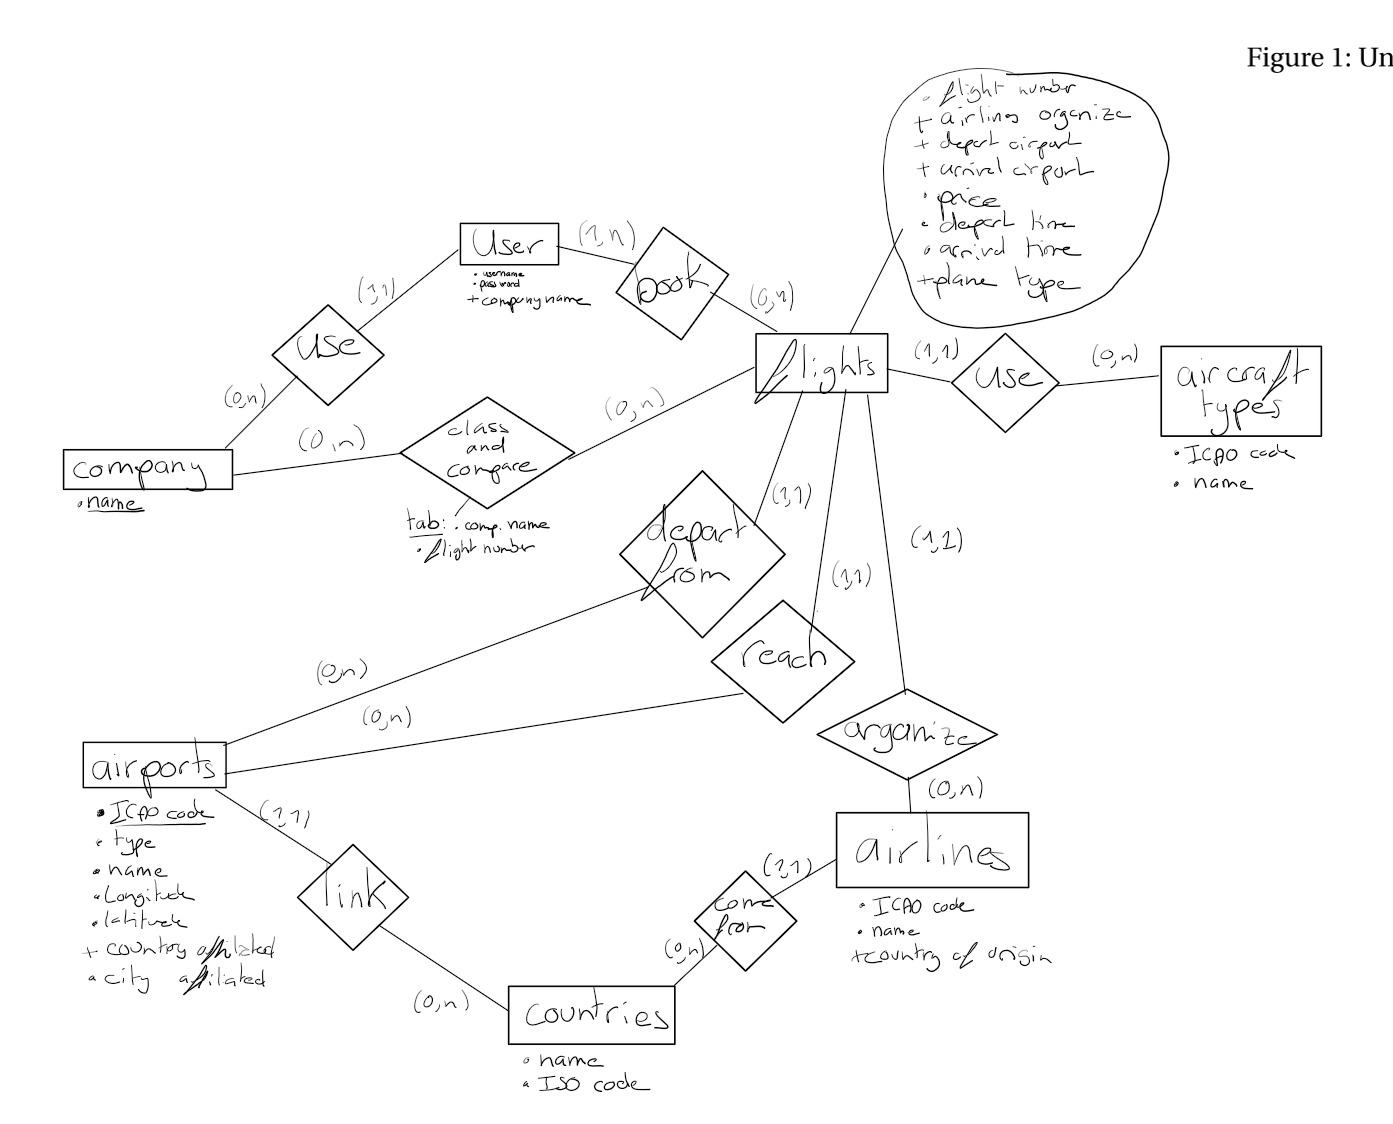 Figure 1: Un
• flight number
+ airlines organize
+ depart airport
+ arrival airport
• price
• depart time
• arrival time
+ plane type
User
• username
• password
+ company name
(1,n)
book
(0,n)
(1,1)
use
(0,n)
flights
(1,1)
use
(0,n)
aircraft
types
• ICAO code
• name
company
• name
(0,n)
class
and
compare
(0,n)
tab: • comp. name
• flight number
depart
from
(1,1)
(0,n)
reach
(1,1)
(0,n)
(1,1)
organize
(0,n)
airports
• ICAO code
• type
• name
• Longitude
• latitude
+ country affiliated
• city affiliated
(1,1)
link
(0,n)
airlines
• ICAO code
• name
+ country of origin
(1,1)
come
from
(0,n)
countries
• name
• ISO code